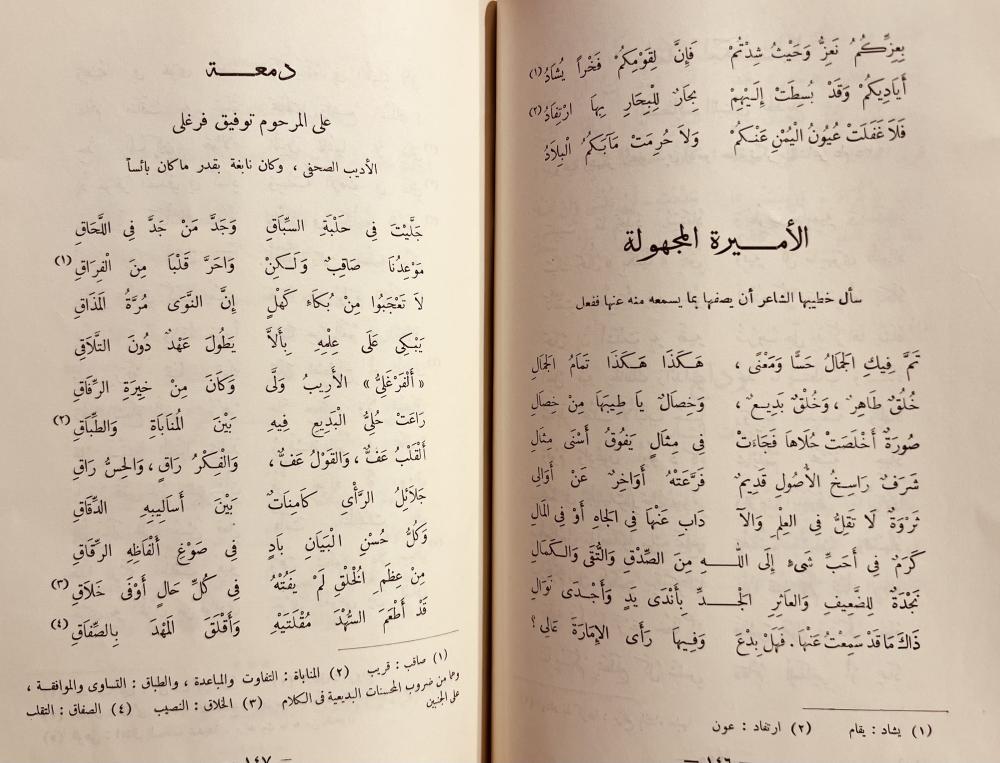 بِعِزِّكُمُ نَعِزُّ وَحَيْثُ شِدْتُمْ فَإِنَّ لِقَوْمِكُمْ فَخْراً يُشَادُ (١)
أَيَادِيكُمْ وَقَدْ بُسِطَتْ إِلَيْهِمْ بِحَارٌ لِلْبِحَارِ بِهَا ارْتِفَادُ (٢)
فَلَا غَفَلَتْ عُيُونُ الْيُمْنِ عَنْكُمْ وَلَا حُرِمَتْ مَآبَكُمُ الْبِلَادُ
الأمـيرة المجهولة
سأل خطيبها الشاعر أن يصفها بما يسمعه منه عنها ففعل
تَمَّ فِيكِ الجَمَالُ حَسًّا وَمَعْنًى ، هَكَذَا هَكَذَا تَمَامُ الجَمَالِ
خُلُقٌ طَاهِرٌ ، وَخُلْقٌ بَدِيعٌ ، وَخِصَالٌ يَا طِيبَهَا مِنْ خِصَالِ
صُورَةٌ أَخْلَصَتْ حُلَاهَا فَجَاءَتْ فِي مِثَالٍ يَفُوقُ أَسْنَى مِثَالِ
شَرَفٌ رَاسِخُ الْأُصُولِ قَدِيمٌ فَرَّعَتْهُ أَوَاخِرٌ عَنْ أَوَالِي
ثَرْوَةٌ لَا تَقِلُّ فِي الْعِلْمِ وَالآ دَابِ عَنْهَا فِي الجَاهِ أَوْ فِي المَالِ
كَرَمٌ فِي أَحَبِّ شَيْءٍ إِلَى اللّٰـهِ مِنَ الصِّدْقِ وَالتُّقَى وَالْكَمَالِ
نَجْدَةٌ لِلضَّعِيفِ وَالعَاثِرِ الجَـدِّ بِأَنْدَى يَدٍ وَأَجْدَى نَوَالِ
ذَاكَ مَا قَدْ سَمِعْتُ عَنْهَا . فَهَلْ بِدْعٌ وَفِيهَا رَأَى الإِمَارَةَ عَالِي ؟
(١) يشاد : يقام (٢) ارتفاد : عون
— ١٤٦ —
دمعـــة
على المرحوم توفيق فرغلى
الأديب الصحفى ، وكان نابغة بقدر ما كان بائساً
جَلَّيْتَ فِي حَلْبَةِ السِّبَاقِ وَجَدَّ مَنْ جَدَّ فِي اللَّحَاقِ
مَوْعِدُنَا صَاقِبٌ وَلَـكِنْ وَاحَرَّ قَلْبَا مِنَ الْفِرَاقِ (١)
لَا تَعْجَبُوا مِنْ بُكَاءِ كَهْلٍ إِنَّ النَّوَى مُرَّةُ المَذَاقِ
يَبْكِي عَلَى عِلْمِهِ بِأَلاَّ يَطُولَ عَهْدٌ دُونَ التَّلَاقِي
« أَلْفَرْغَلِيُّ » الأَرِيبُ وَلَّى وَكَانَ مِنْ خِيرَةِ الرِّفَاقِ
رَاعَتْ حُلِيُّ الْبَدِيعِ فِيهِ بَيْنَ الْمُنَابَاةِ وَالطِّبَاقِ (٢)
أَلْقَلْبُ عَفٌّ ، وَالقَوْلُ عَفٌّ ، وَالْفِكْرُ رَاقٍ ، وَالحِسُّ رَاقِ
جَلَائِلُ الرَّأْىِ كَامِنَاتٌ بَيْنَ أَسَالِيبِهِ الدِّقَاقِ
وَكُلُّ حُسْنِ الْبَيَانِ بَادٍ فِي صَوْغِ أَلْفَاظِهِ الرِّقَاقِ
مِنْ عِظَمِ الْخُلْقِ لَمْ يَفُتْهُ فِي كُلِّ حَالٍ أَوْفَى خَلَاقِ (٣)
قَدْ أَطْعَمَ السُّهْدَ مُقْلَتَيْهِ وَأَقْلَقَ المَهْدَ بِالصِّفَاقِ (٤)
(١) صاقب : قريب (٢) المناباة : التفاوت والمباعدة ، والطباق : التساوى والموافقة ،
وهما من ضروب المحسنات البديعية فى الكلام (٣) الخلاق : النصيب (٤) الصفاق : التقلب
على الجنبين
— ١٤٧ —